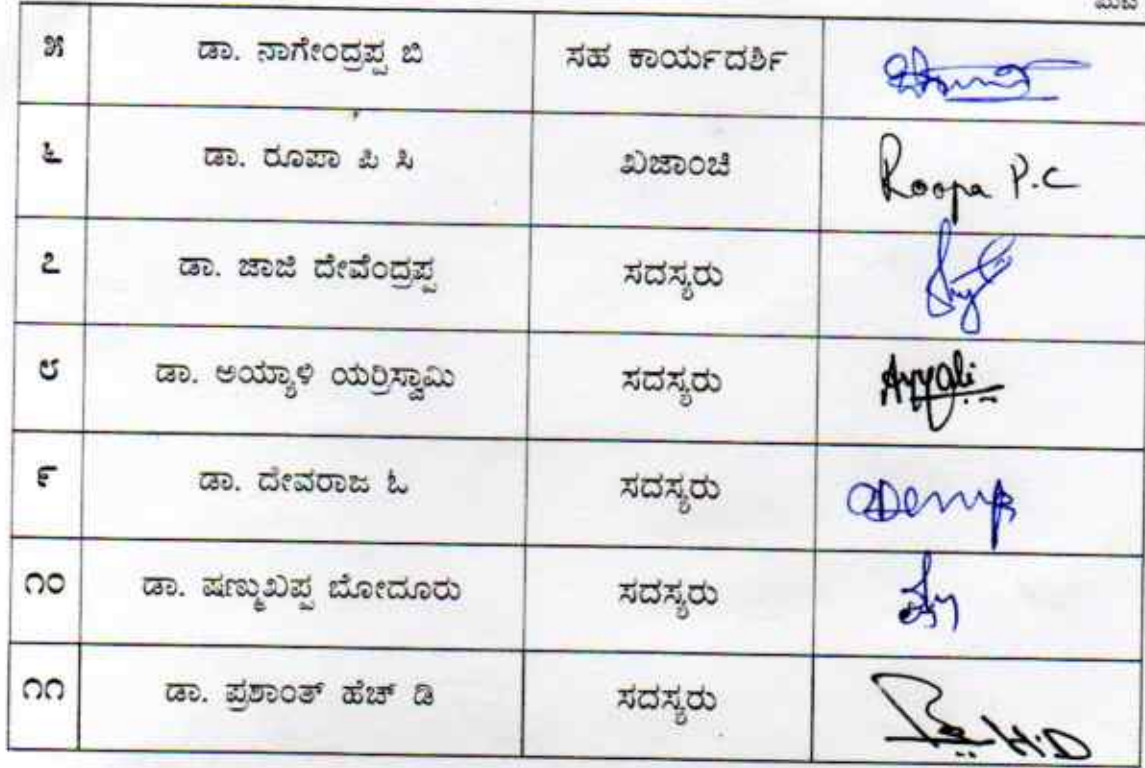 ೫ ಡಾ. ನಾಗೇಂದ್ರಪ್ಪ ಬಿ ಸಹ ಕಾರ್ಯದರ್ಶಿ
೬ ಡಾ. ರೂಪಾ ಪಿ ಸಿ ಖಜಾಂಚಿ Roopa P.C
೭ ಡಾ. ಜಾಜಿ ದೇವೆಂದ್ರಪ್ಪ ಸದಸ್ಯರು
೮ ಡಾ. ಅಯ್ಯಾಳಿ ಯರ‍್ರಿಸ್ವಾಮಿ ಸದಸ್ಯರು Ayyali
೯ ಡಾ. ದೇವರಾಜ ಓ ಸದಸ್ಯರು
೧೦ ಡಾ. ಷಣ್ಮುಖಪ್ಪ ಬೋದೂರು ಸದಸ್ಯರು
೧೧ ಡಾ. ಪ್ರಶಾಂತ್ ಹೆಚ್ ಡಿ ಸದಸ್ಯರು H.D